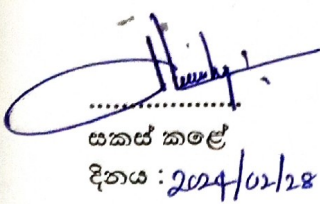 ....................
සකස් කළේ
දිනය : 2024/02/28